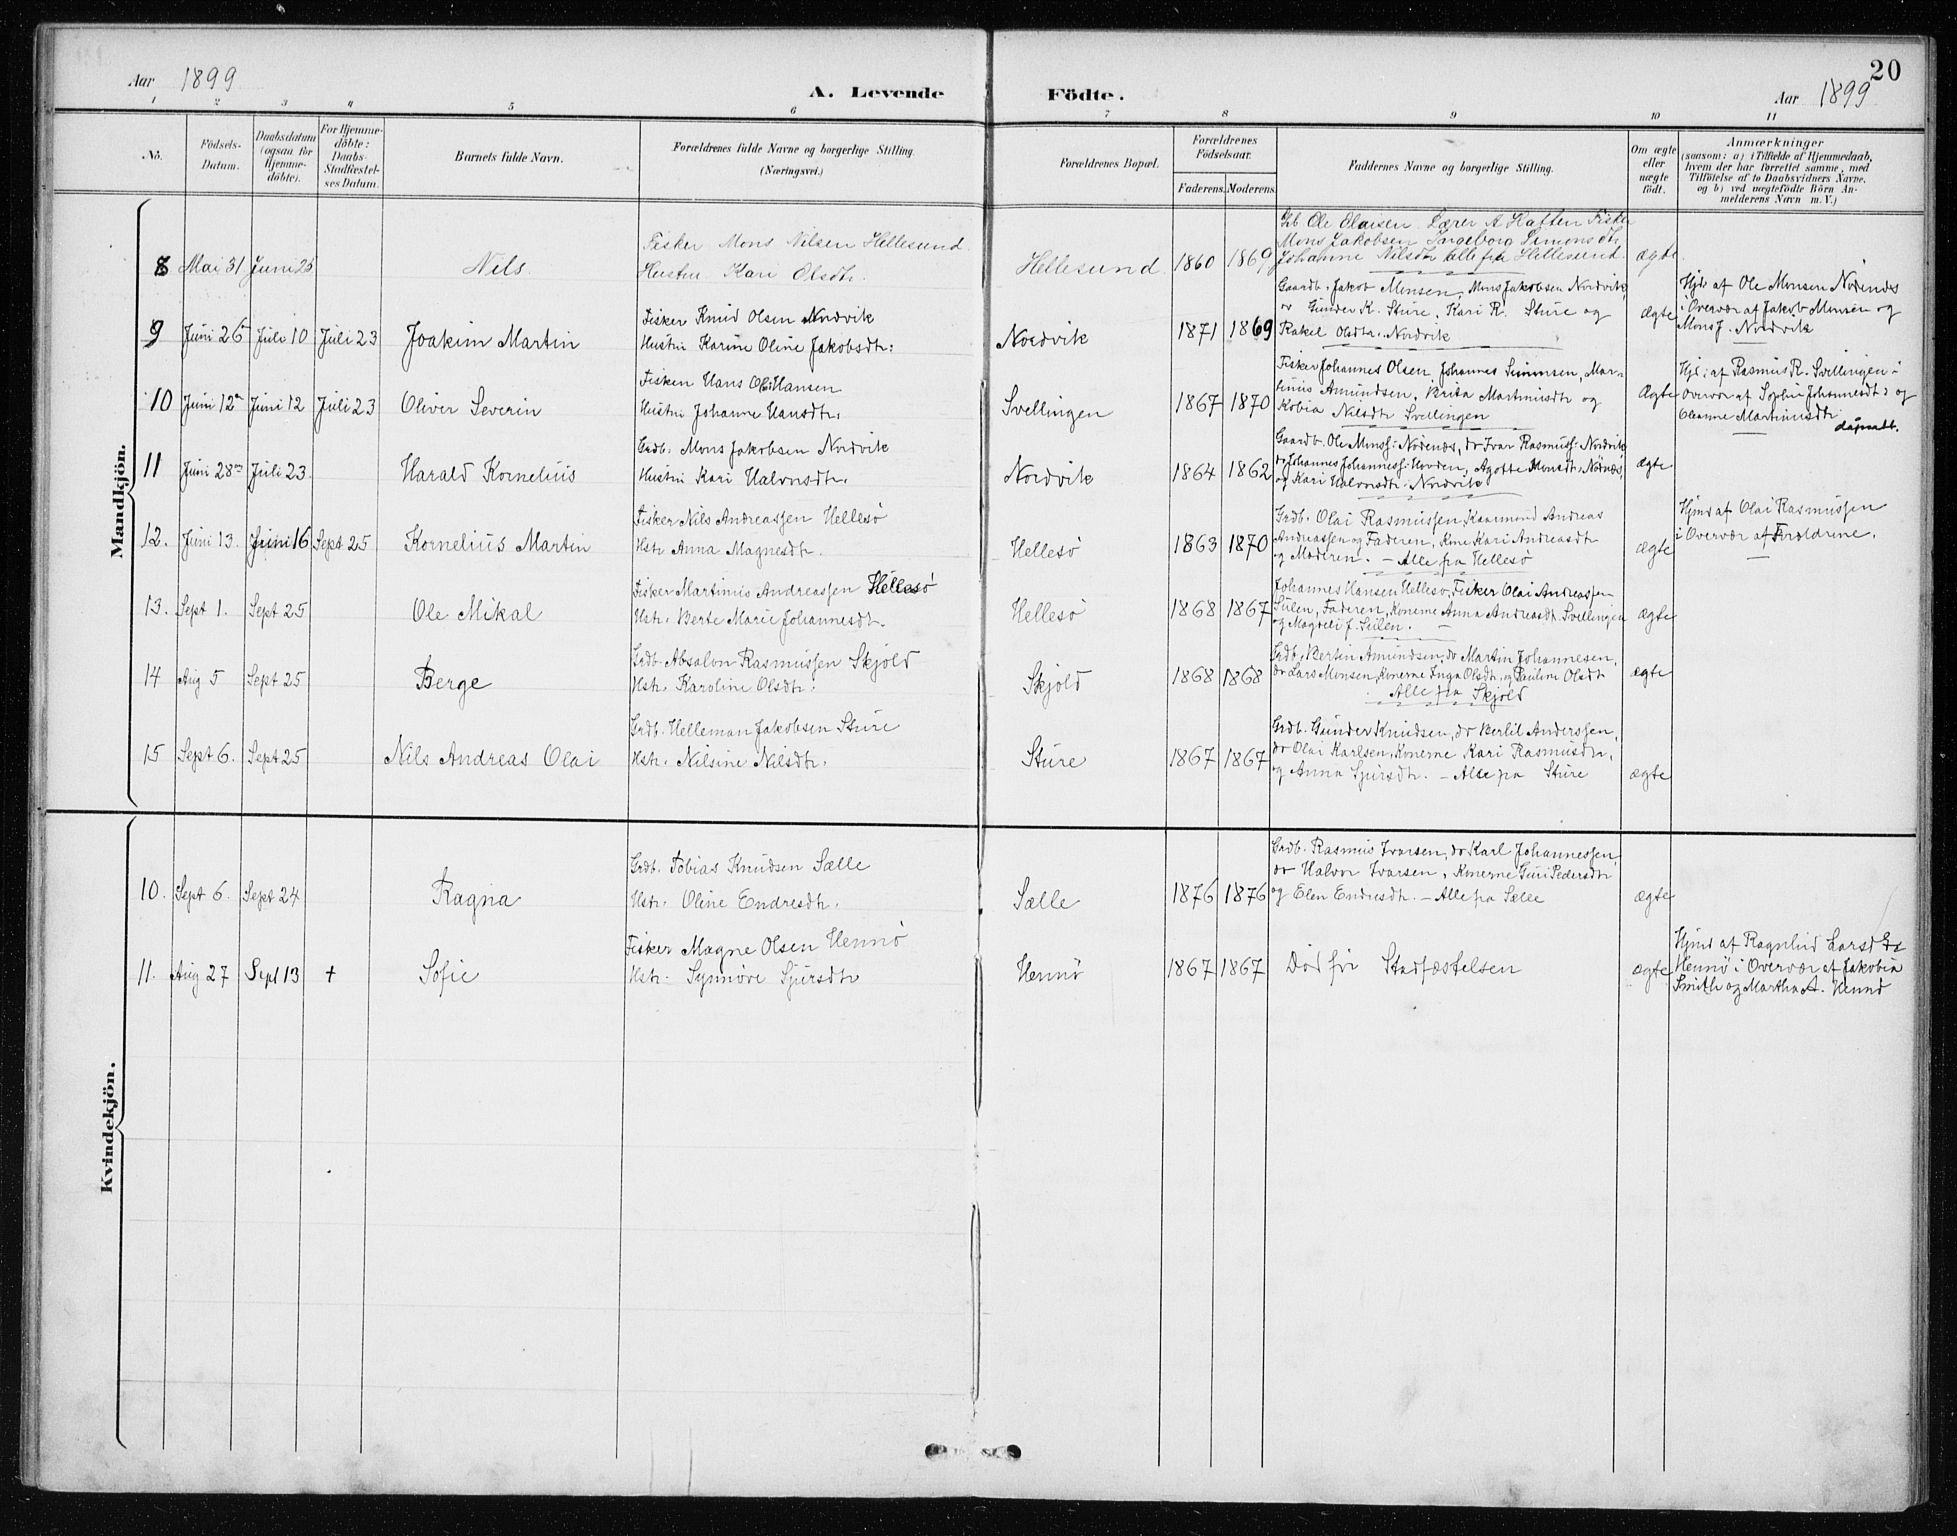 20
Aar 1899
A. Levende Födte.
Aar 1899
1 2 3 4 5 6 7 8 9 10 11
No.
Födsels-Datum.
Daabsdatum (ogsaa for Hjemme-döbte).
For Hjemme-döbte: Daabs-Stadfæstel-ses Datum.
Barnets fulde Navn.
Forældrenes fulde Navne og borgerlige Stilling.
(Næringsvei.)
Forældrenes Bopæl.
Forældrenes Födselsaar.
Faderens. Moderens.
Faddernes Navne og borgerlige Stilling.
Om ægte eller uægte födt.
Anmærkninger
(saasom: a) i Tilfælde af Hjemmedaab,
hvem der har forrettet samme, med
Tilföielse af to Daabsvidners Navne,
og b) ved uægtefödte Börn An-
melderens Navn m. V.)
Mandkjön.
8 Mai 31 Juni 25 Nils
Fisker Mons Nilsen Hellesund
Hustru Kari Olsdtr.
Hellesund 1860 1869
Gb Ole Olaisen Lærer A Haften Fisker
Mons Jakobsen Ingeborg Simonsdtr
Johanne Nilsdtr alle fra Hellesund
ægte
9 Juni 26 Juli 10 Juli 23 Joakim Martin
Fisker Knud Olsen Nordvik
Hustru Karine Oline Jakobsdtr:
Nordvik 1871 1869
Gaardb. Jakob Monsen, Mons Jakobsen Nordvik,
Gunder K. Sture, Kari R. Sture og
Rakel Olsdtr. Nordvik
ægte
Hjd. af Ole Monsen Nødenes
i Overvær af Jakob Monsen og
Mons J. Nordvik
10 Juni 12 Juni 12 Juli 23 Oliver Severin
Fisker Hans Ol. Hansen
Hustru Johanne Hansdtr.
Svellingen 1867 1870
Fisker Johannes Olsen Johannes Simonsen, Mar-
tinus Amundsen, Brita Martinusdtr og
Kobia Nilsdtr Svellingen
Ægte
Hjd: af Rasmus R. Svellingen i
Overvær af Sophie Johannesdtr og
Oleanne Martinusdtr.
døpnatt.
11 Juni 28 Juli 23. Harald Kornelius
Grdb. Mons Jakobsen Nordvik
Hustru Kari Halvorsdtr.
Nordvik 1864 1862
Gaardb. Ole Monss: Nødenæs, do Ivar Rasmuss: Nordvik
do Johannes Johanness: Hovden, Agotte Monsdtr: Nødnæs,
og Kari Halvorsdtr. Nordvik
ægte
12. Juni 13. Juni 16 Sept 25 Kornelius Martin
Fisker Nils Andreassen Hellesø
Hstr. Anna Magnesdtr.
Hellesø 1863 1870
Grdb. Olai Rasmussen, Andreas
Andreassen og Faderen, Kone Kari Andreasdtr
og Moderen. – Alle fra Hellesø
ægte
Hjmd af Olai Rasmussen
i Overvær af Forældrene.
13. Sept 1. Sept 25 Ole Mikal
Fisker Martinus Andreassen Hellesø
Hstr. Berte Marie Johannesdtr.
Hellesø 1868 1867
Johannes Hansen Hellesø, Fisker Olai Andreassen
Seilen, Faderen, Konerne Anna Andreasdtr Svellingen
og Magdeli J. Seilen. –
ægte
14 Aug 5 Sept 25 Berge
Grdb. Absalon Rasmussen Skjold
Hstr. Karoline Olsdtr.
Skjold 1868 1868
Grdb. Bertin Amundsen, do Martin Johannesen,
do Lars Monsen, Konerne Inga Olsdtr, og Pauline Olsdtr
Alle fra Skjold
ægte
15 Sept 6. Sept 25 Nils Andreas Olai
Grdb. Helleman Jakobsen Sture
Hstr. Nilsine Nilsdtr.
Sture 1867 1867
Grdb. Gunder Knudsen, do Bertil Anderssen,
do Olai Karlsen, Konerne Kari Rasmusdtr,
og Anna Sjursdtr. – Alle fra Sture
ægte
Kvindekjön.
10. Sept 6. Sept 24 Ragna
Grdb. Tobias Knudsen Sælle
Hstr. Oline Endresdtr.
Sælle 1876 1876
Grdb. Rasmus Ivarsen, do Karl Johannessen,
do Halvor Ivarsen, Konerne Guri Pedersdtr
og Elen Endresdtr. – Alle fra Sælle
ægte
11. Aug 27 Sept 13 + Sofie
Fisker Magne Olsen Hennø
Hstr. Synnøve Sjursdtr
Hennø 1867 1867 Død før Stadfæstelsen ægte
Hjmd af Ragnhild Larsdtr
Hennø i Overvær af Jakobia
Smith og Martha A. Hennø